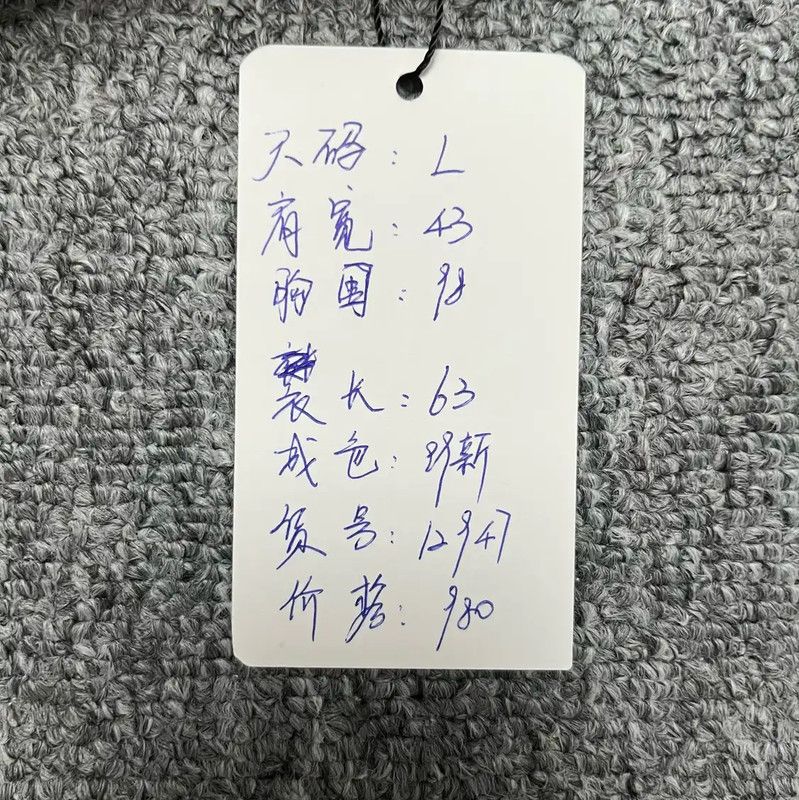 尺码: L
肩宽: 43
胸围: 98
衣长: 63
成色: 99新
货号: 12947
价格: 980